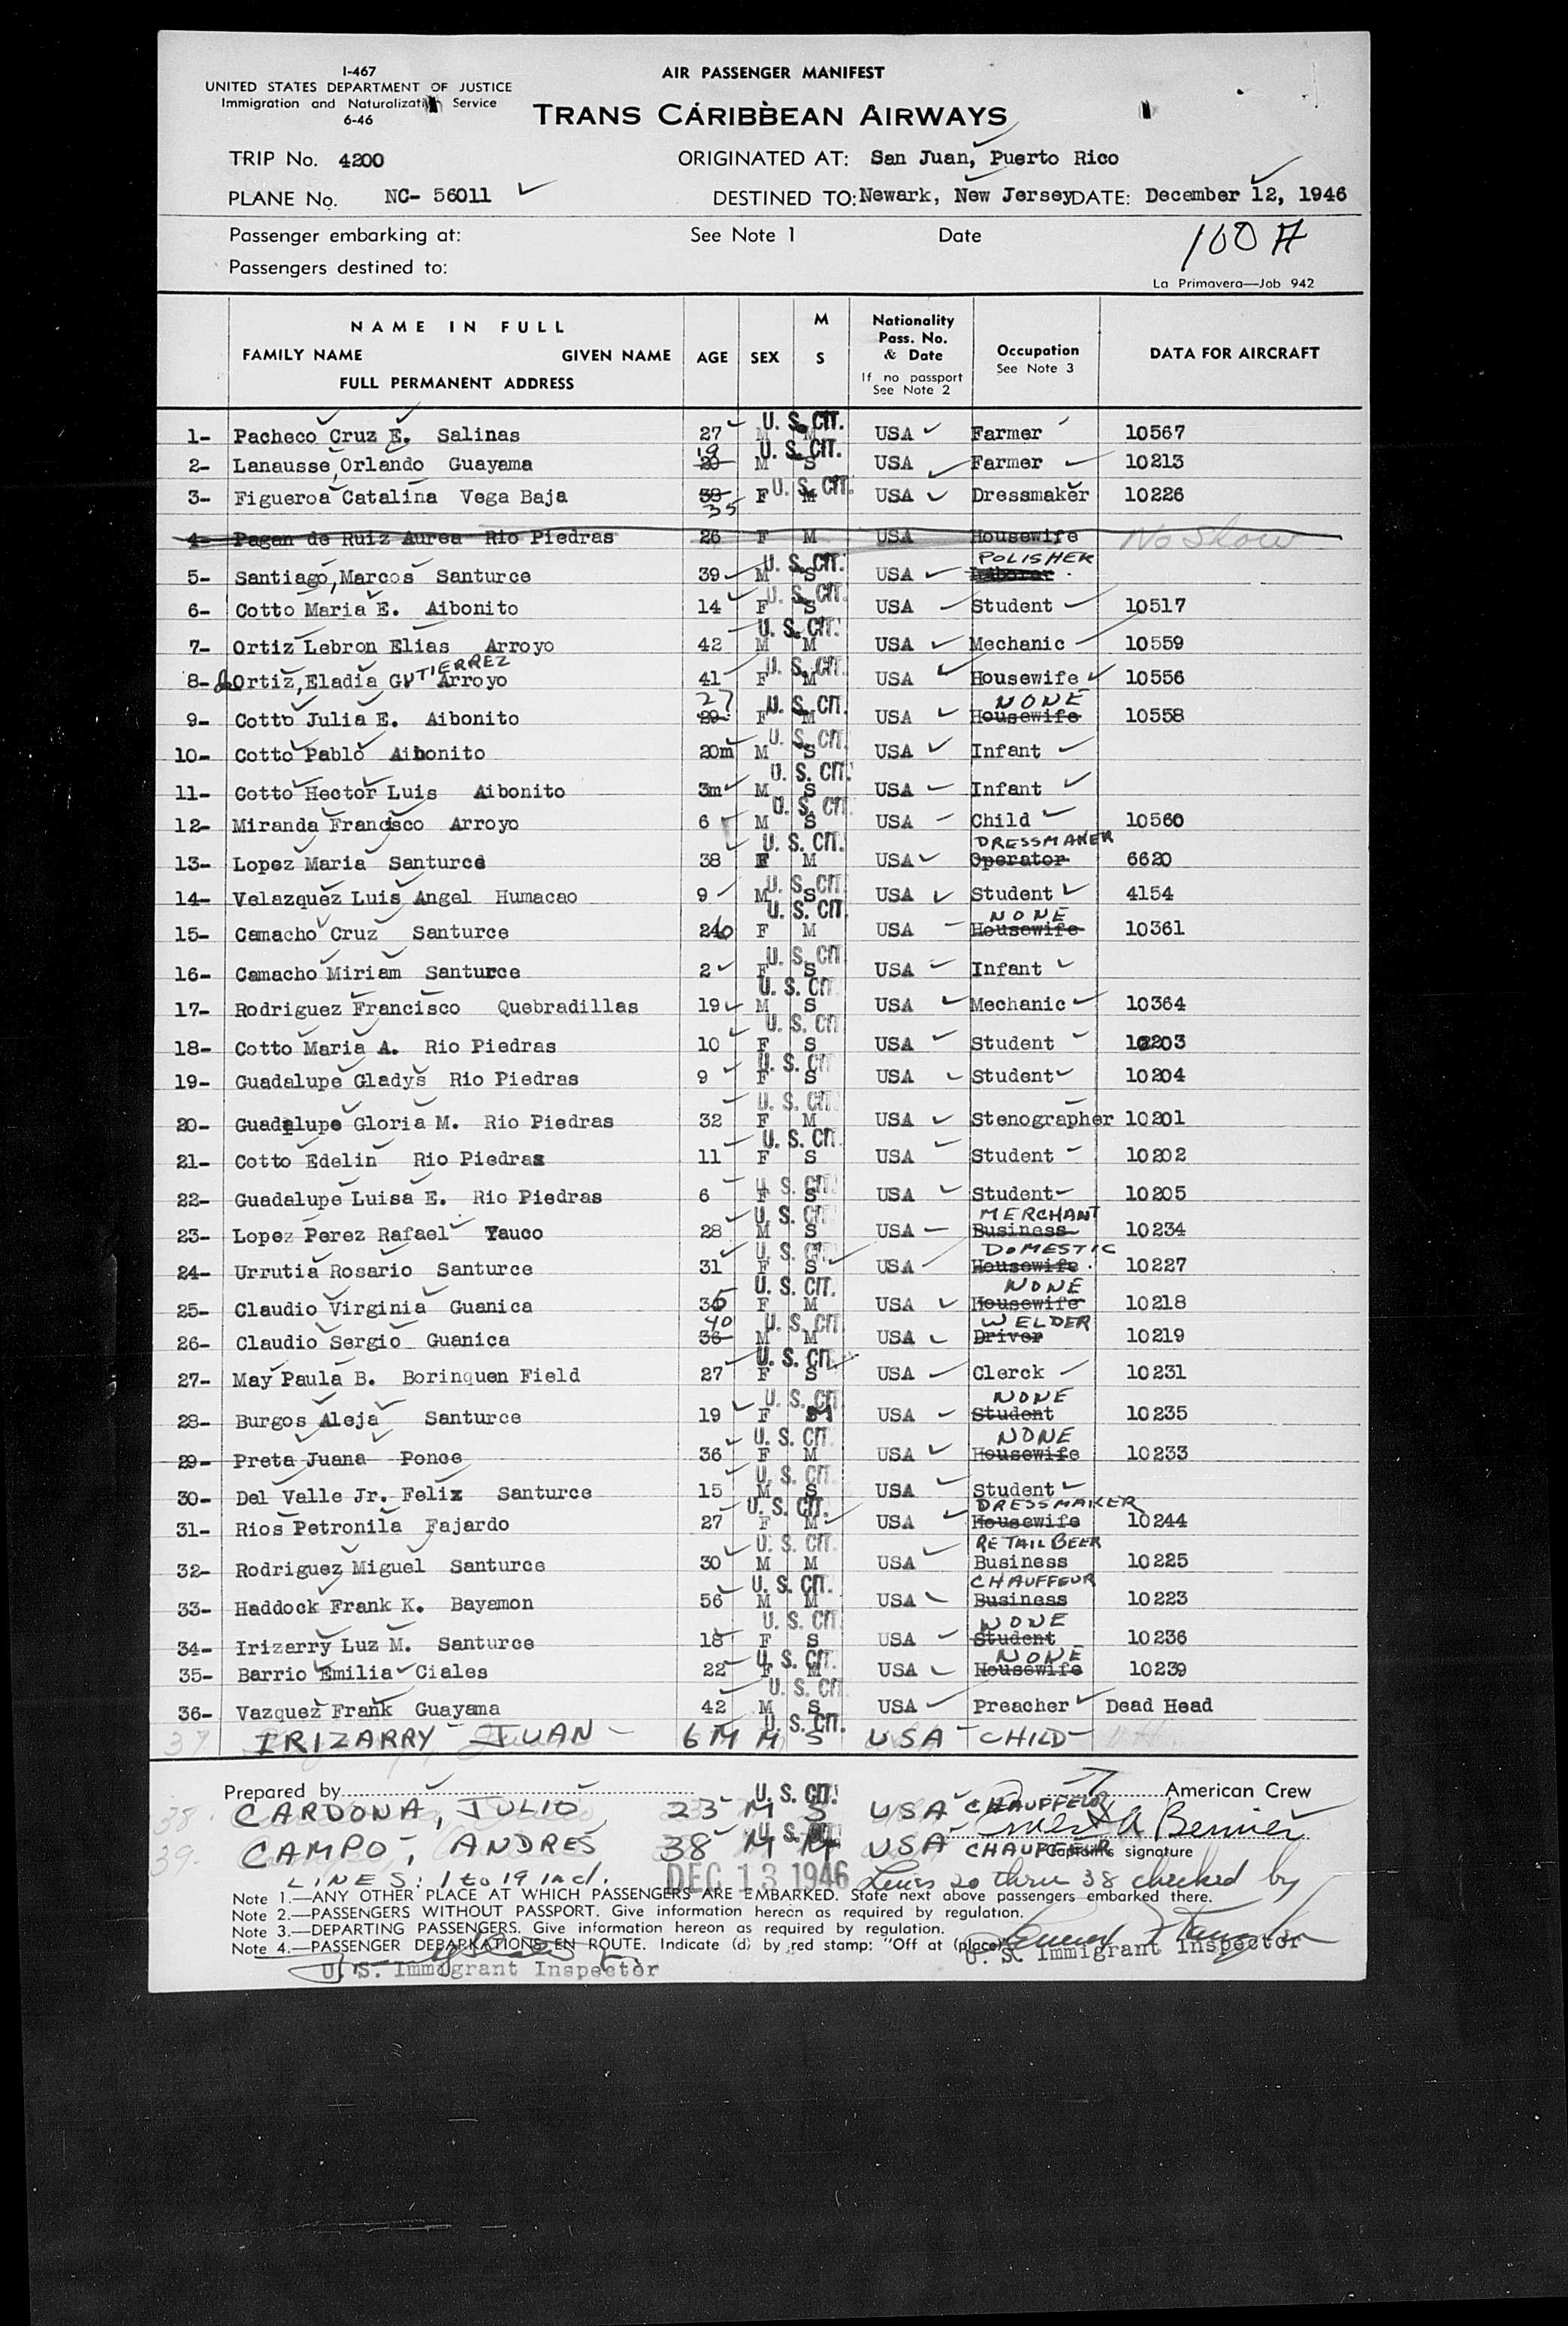 I-467
UNITED STATES DEPARTMENT OF JUSTICE
Immigration and Naturalization Service
6-46
AIR PASSENGER MANIFEST
TRANS CARIBBEAN AIRWAYS
TRIP No. 4200 ORIGINATED AT: San Juan, Puerto Rico
PLANE No. NC- 56011 DESTINED TO: Newark, New Jersey DATE: December 12, 1946
Passenger embarking at: See Note 1 Date 100 A
Passengers destined to:
La Primavera—Job 942
NAME IN FULL
FAMILY NAME GIVEN NAME
FULL PERMANENT ADDRESS
AGE SEX M S
Nationality Pass. No. & Date
If no passport See Note 2
Occupation See Note 3
DATA FOR AIRCRAFT
1- Pacheco Cruz E. Salinas 27 M M U. S. CIT. USA Farmer 10567
2- Lanausse, Orlando Guayama 20 19 M S U. S. CIT. USA Farmer 10213
3- Figueroa Catalina Vega Baja 38 35 F M U. S. CIT. USA Dressmaker 10226
4- Pagan de Ruiz Aurea Rio Piedras 26 F M USA Housewife No Show
5- Santiago, Marcos Santurce 39 M S U. S. CIT. USA Laborer POLISHER
6- Cotto Maria E. Aibonito 14 F S U. S. CIT. USA Student 10517
7- Ortiz Lebron Elias Arroyo 42 M M U. S. CIT. USA Mechanic 10559
8- de Ortiz, Eladia GUTIERREZ Arroyo 41 F M U. S. CIT. USA Housewife 10556
9- Cotto Julia E. Aibonito 29 27 F M U. S. CIT. USA Housewife NONE 10558
10- Cotto Pablo Aibonito 20m M S U. S. CIT. USA Infant
11- Cotto Hector Luis Aibonito 3m M S U. S. CIT. USA Infant
12- Miranda Francisco Arroyo 6 M S U. S. CIT. USA Child 10560
13- Lopez Maria Santurce 38 F M U. S. CIT. USA Operator DRESSMAKER 6620
14- Velazquez Luis Angel Humacao 9 M S U. S. CIT. USA Student 4154
15- Camacho Cruz Santurce 26 F M U. S. CIT. USA Housewife NONE 10361
16- Camacho Miriam Santurce 2 F S U. S. CIT. USA Infant
17- Rodriguez Francisco Quebradillas 19 M S U. S. CIT. USA Mechanic 10364
18- Cotto Maria A. Rio Piedras 10 F S U. S. CIT. USA Student 10203
19- Guadalupe Gladys Rio Piedras 9 F S U. S. CIT. USA Student 10204
20- Guadalupe Gloria M. Rio Piedras 32 F M U. S. CIT. USA Stenographer 10201
21- Cotto Edelin Rio Piedras 11 F S U. S. CIT. USA Student 10202
22- Guadalupe Luisa E. Rio Piedras 6 F S U. S. CIT. USA Student 10205
23- Lopez Perez Rafael Yauco 28 M S U. S. CIT. USA Business MERCHANT 10234
24- Urrutia Rosario Santurce 31 F S U. S. CIT. USA Housewife DOMESTIC 10227
25- Claudio Virginia Guanica 35 F M U. S. CIT. USA Housewife NONE 10218
26- Claudio Sergio Guanica 36 40 M M U. S. CIT. USA Driver WELDER 10219
27- May Paula B. Borinquen Field 27 F S U. S. CIT. USA Clerck 10231
28- Burgos Aleja Santurce 19 F M U. S. CIT. USA Student NONE 10235
29- Preta Juana Ponce 36 F M U. S. CIT. USA Housewife NONE 10233
30- Del Valle Jr. Felix Santurce 15 M S U. S. CIT. USA Student
31- Rios Petronila Fajardo 27 F M U. S. CIT. USA Housewife DRESSMAKER 10244
32- Rodriguez Miguel Santurce 30 M M U. S. CIT. USA Business RETAIL BEER 10225
33- Haddock Frank K. Bayamon 56 M M U. S. CIT. USA Business CHAUFFEUR 10223
34- Irizarry Luz M. Santurce 18 F S U. S. CIT. USA Student NONE 10236
35- Barrio Emilia Ciales 22 F M U. S. CIT. USA Housewife NONE 10239
36- Vazquez Frank Guayama 42 M S U. S. CIT. USA Preacher Dead Head
37 IRIZARRY JUAN 6M M S U. S. CIT. USA CHILD
Prepared by American Crew
38. CARDONA, JULIO 23 M S U. S. CIT. USA CHAUFFEUR
39. CAMPO, ANDRES 38 M M U. S. CIT. USA CHAUFFEUR
Captain's signature
LINES: 1 to 19 incl. DEC 13 1946 Lines 20 thru 38 checked by
Note 1.—ANY OTHER PLACE AT WHICH PASSENGERS ARE EMBARKED. State next above passengers embarked there.
Note 2.—PASSENGERS WITHOUT PASSPORT. Give information hereon as required by regulation.
Note 3.—DEPARTING PASSENGERS. Give information hereon as required by regulation.
Note 4.—PASSENGER DEBARKATIONS EN ROUTE. Indicate (d) by red stamp: "Off at (place)
U. S. Immigrant Inspector U. S. Immigrant Inspector